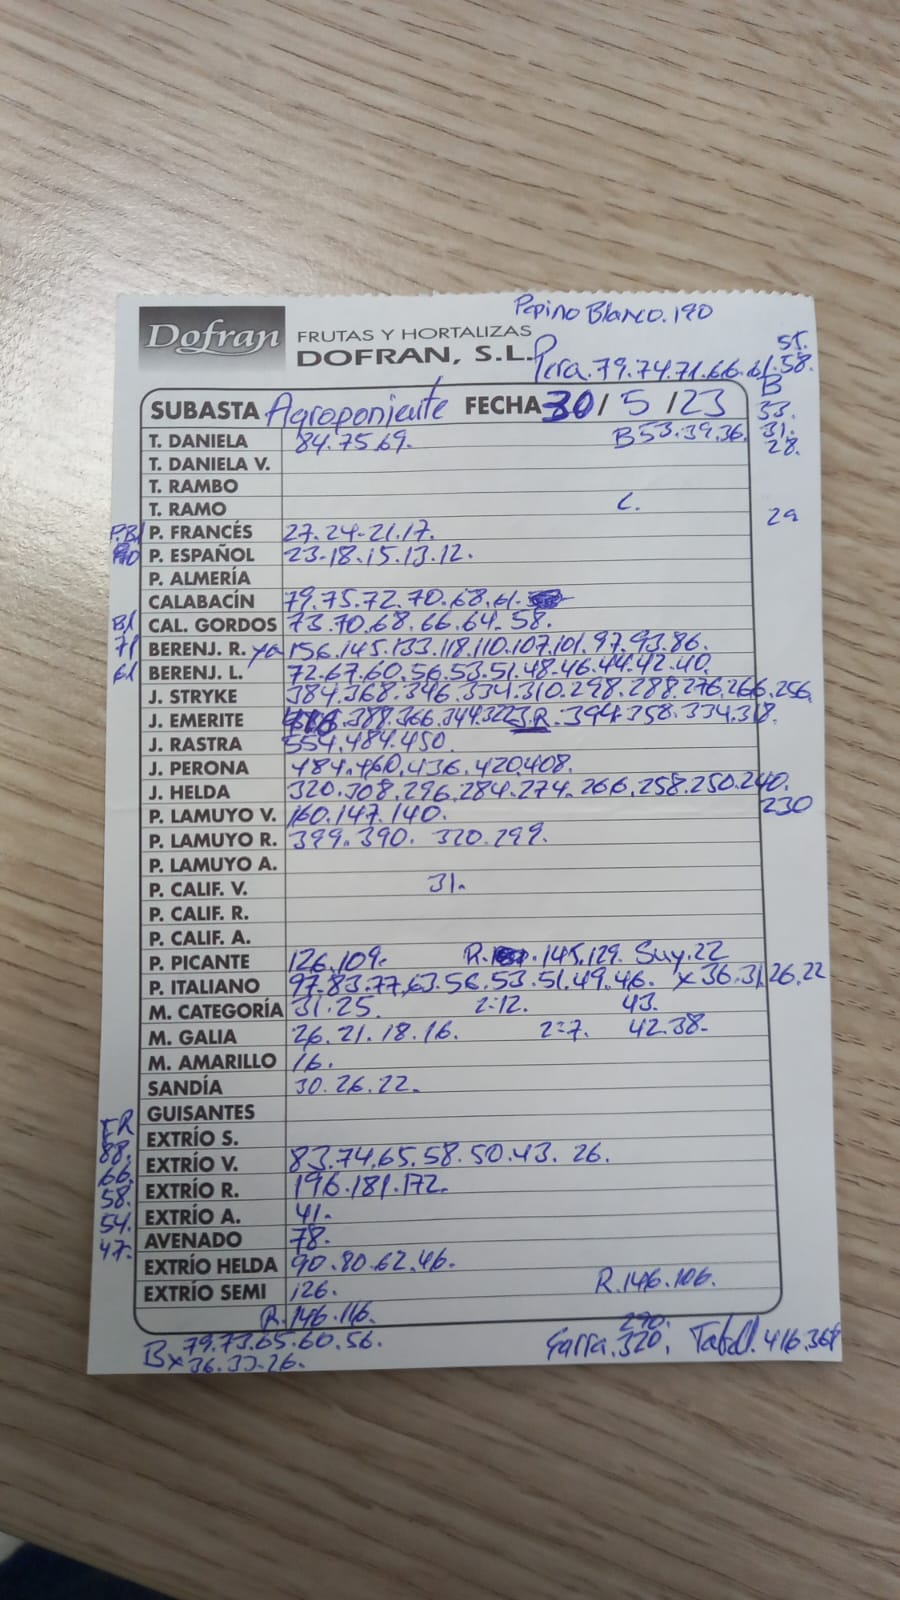 Pepino Blanco.190
Dofran FRUTAS Y HORTALIZAS
DOFRAN, S.L.
Pera.79.74.71.66.61.58.
55.
SUBASTA Agroponiente FECHA 30/5/23
B
33.
31.
28.
T. DANIELA 84.75.69. B53.39.36.
T. DANIELA V.
T. RAMBO
T. RAMO C.
29
P. FRANCÉS 27.24-21.17.
P. ESPAÑOL 23-18.15.13.12.
P. ALMERÍA
CALABACÍN 79.75.72.70.68.61.
Bl CAL. GORDOS 73.70.68.66.64.58.
71 BERENJ. R. 156.145.133.118.110.107.101.97.93.86.
61 BERENJ. L. 72.67.60.56.53.51.48-46.44.42.40.
J. STRYKE 384.368.346.334.310.298.288.276.266.256
J. EMERITE .388.366.344.322 J.R.394.358.334.318.
J. RASTRA 554.484.450.
J. PERONA 484.460.436.420.408.
J. HELDA 320.308.296.284.274.266.258.250.240.
230
P. LAMUYO V. 160.147.140.
P. LAMUYO R. 399.390. 320.299.
P. LAMUYO A.
P. CALIF. V. 31.
P. CALIF. R.
P. CALIF. A.
P. PICANTE 126.109. R. .145.129. Suy.22
P. ITALIANO 97.83.77.63.56.53.51.49.46. x36.31.26.22
M. CATEGORÍA 31.25. 2=12. 43.
M. GALIA 26.21.18.16. 2=7. 42.38-
M. AMARILLO 16.
SANDÍA 30.26.22.
GUISANTES
ER
EXTRÍO S.
88.
EXTRÍO V. 83.74.65.58.50.43.26.
66.
58. EXTRÍO R. 196.181.172.
54. EXTRÍO A. 41.
47. AVENADO 78.
EXTRÍO HELDA 90.80.62.46.
EXTRÍO SEMI 126. R.146.106.
R.146.116.
B 79.73.65.60.56.
x36.33.26.
290.
Garra.320. Tabell.416.368